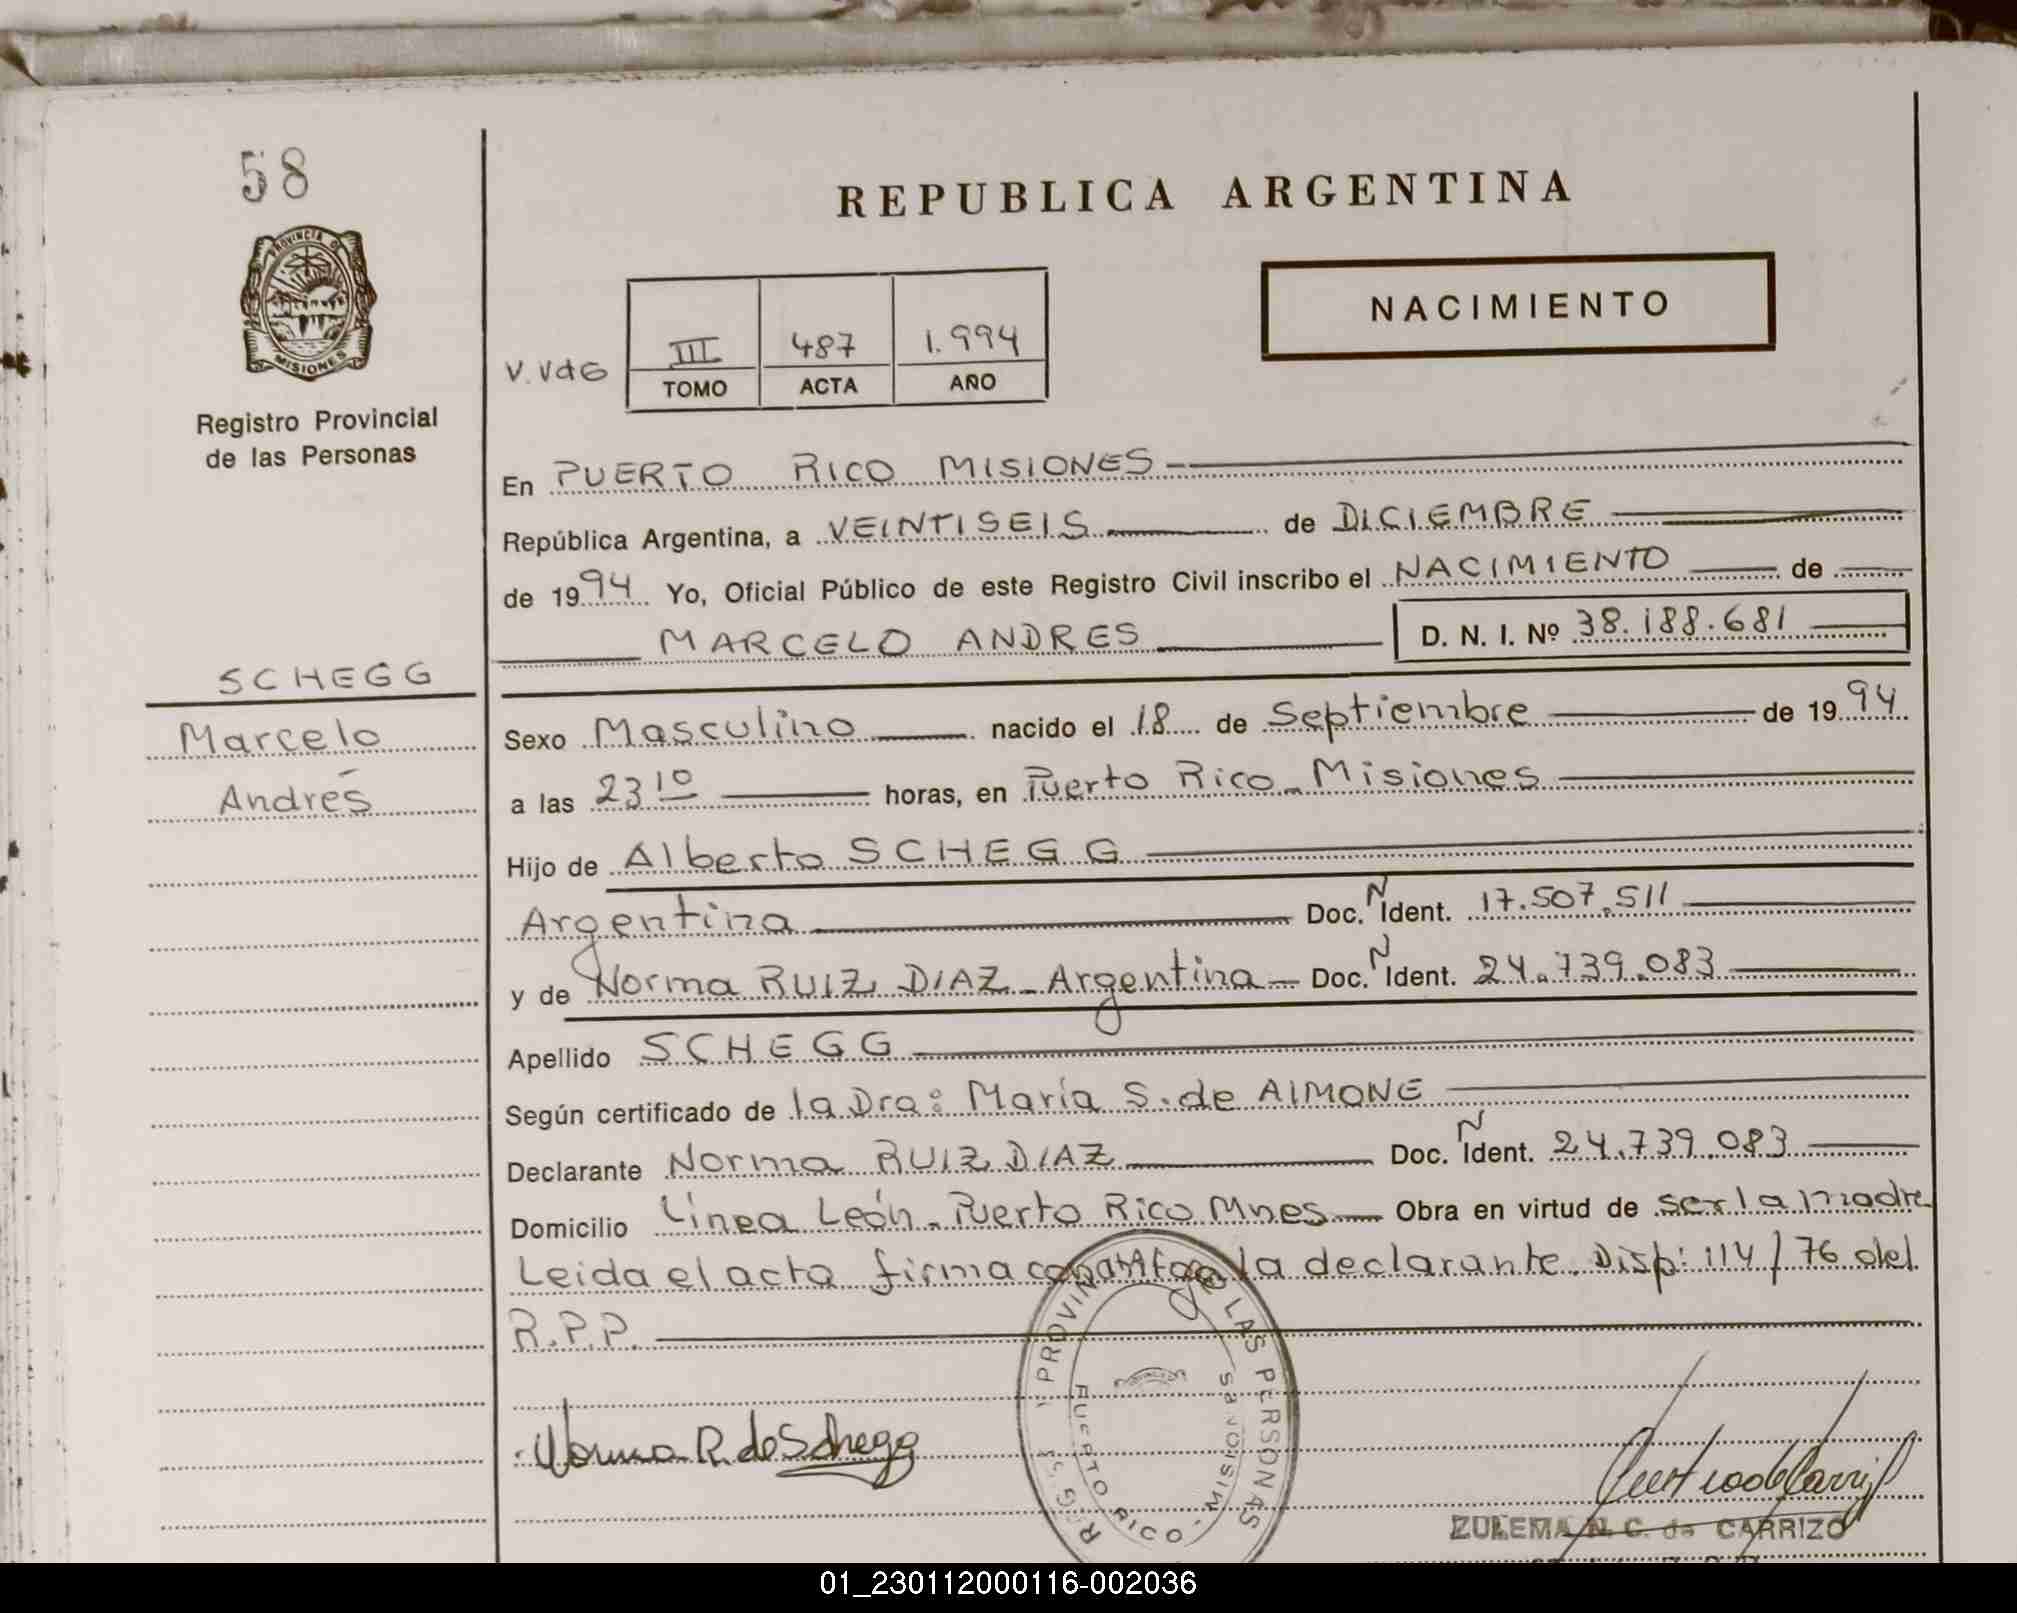 58
REPUBLICA ARGENTINA
PROVINCIA DE
MISIONES
NACIMIENTO
V.VdG
III 487 1.994
TOMO ACTA AÑO
Registro Provincial
de las Personas
En PUERTO RICO MISIONES
República Argentina, a VEINTISEIS de DICIEMBRE
de 1994 Yo, Oficial Público de este Registro Civil inscribo el NACIMIENTO de
MARCELO ANDRES D. N. I. Nº 38.188.681
SCHEGG
Marcelo
Andrés
Sexo Masculino nacido el 18 de Septiembre de 1994
a las 23 10 horas, en Puerto Rico - Misiones
Hijo de Alberto SCHEGG
Argentina Doc. N Ident. 17.507.511
y de Norma RUIZ DIAZ - Argentina - Doc. N Ident. 24.739.083
Apellido SCHEGG
Según certificado de la Dra: María S. de AIMONE
Declarante Norma RUIZ DIAZ Doc. N Ident. 24.739.083
Domicilio Línea León - Puerto Rico Mnes Obra en virtud de ser la madre
Leida el acta firma la declarante. Disp: 114/76 del
R.P.P.
PROVIN LAS PERSONAS
PUERTO RICO - MISIONES
Norma R. de Schegg
ZULEMA N. C. de CARRIZO
01_230112000116-002036